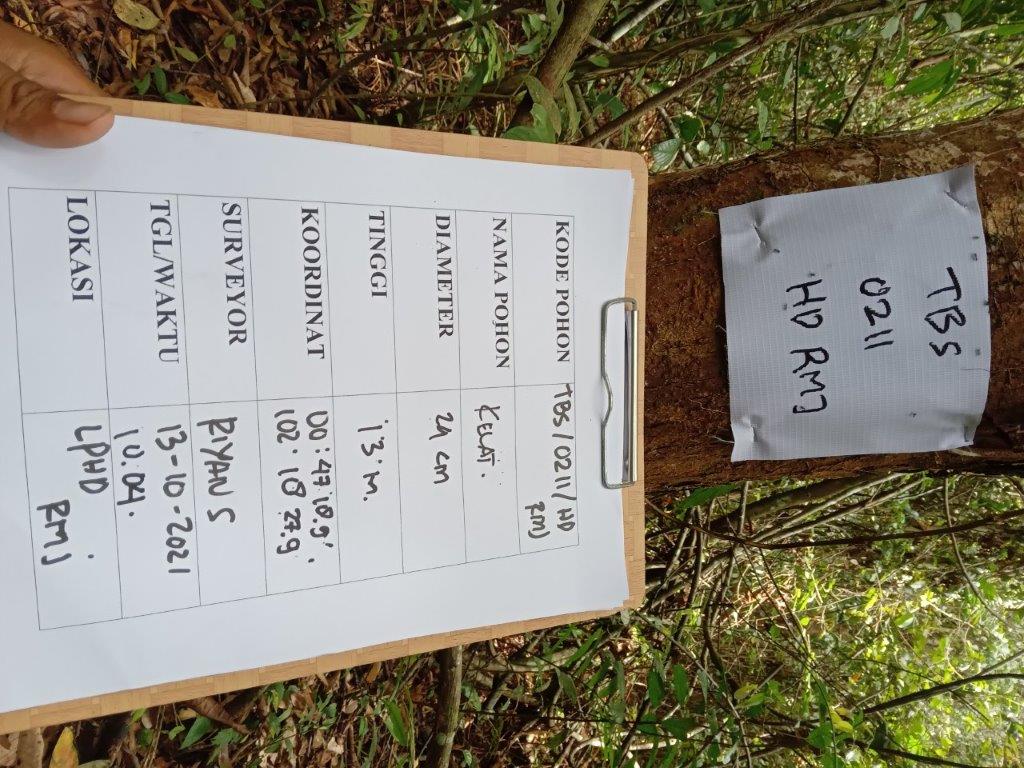 TBS
0211
HD RMJ
KODE POHON TBS/0211/HD
RMJ
NAMA POHON KELAT.
DIAMETER 24 cm
TINGGI 13 m.
KOORDINAT 00:47'18.9'
102.18 27.9
SURVEYOR RIYAN S
TGL/WAKTU 13-10-2021
10.04.
LOKASI LPHD
RMJ